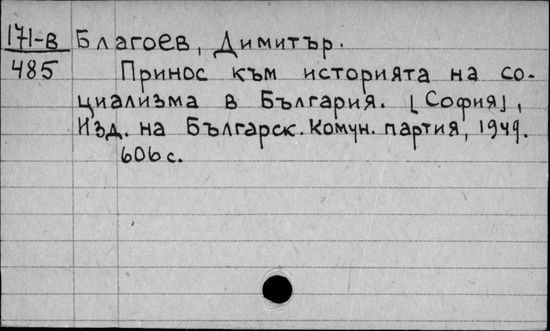 171-в Благоев, Димитър.
485 Принос към историята на со-
циализма в България. [София],
Изд. на Българск. Комун. партия, 1949.
606 с.